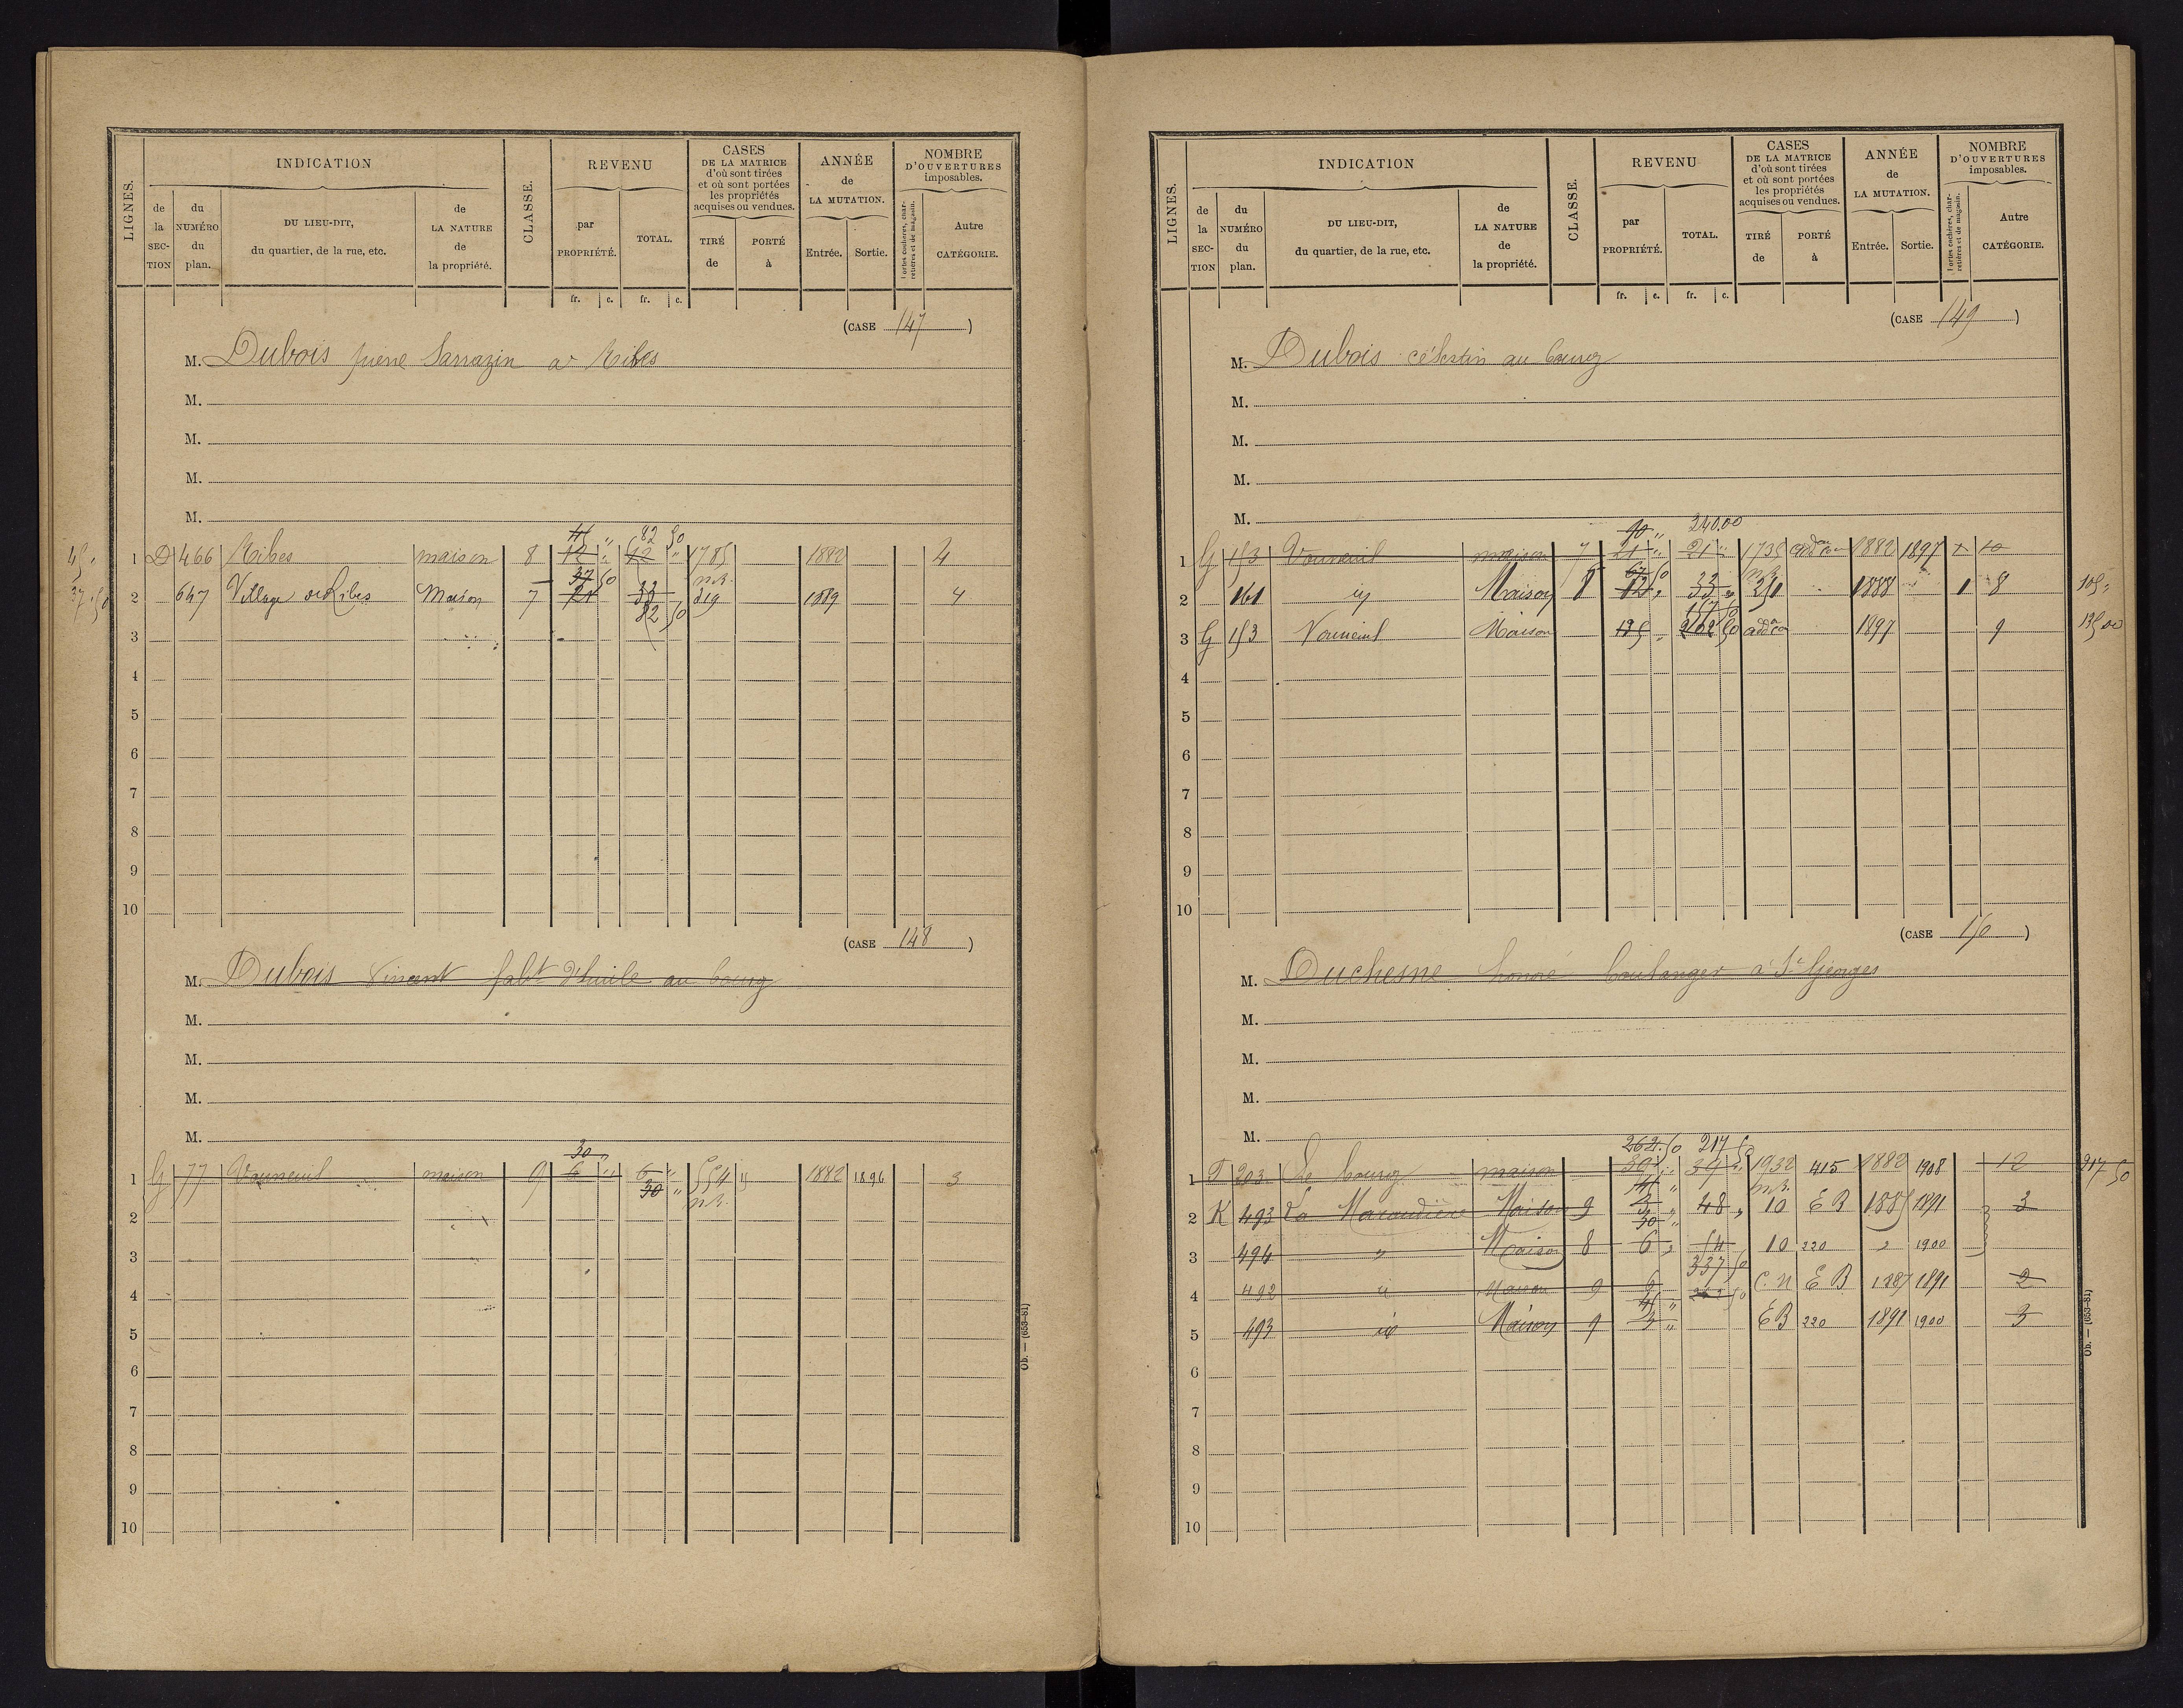 LIGNES.
INDICATION
de la SECTION
du NUMÉRO du plan.
DU LIEU-DIT, du quartier, de la rue, etc.
de LA NATURE de la propriété.
CLASSE.
REVENU
par PROPRIÉTÉ.
TOTAL.
fr. c. fr. c.
CASES DE LA MATRICE d'où sont tirées et où sont portées les propriétés acquises ou vendues.
TIRÉ de
PORTÉ à
ANNÉE de LA MUTATION.
Entrée. Sortie.
NOMBRE D'OUVERTURES imposables.
Portes cochères, charretières et de magasin.
Autre CATÉGORIE.
(CASE 147)
M. Dubois pierre Sarrazin à Ribes
M.
M.
M.
M.
45 " 82 50
45 " 1 D 466 Ribes maison 8 12 " 12 " 1785 1882 4
37 50 n.c.
37 50 2 647 Village de Ribes Maison 7 21 33 319 1889 4
82 50
3
4
5
6
7
8
9
10
(CASE 148)
M. Dubois Vincent fabt d'huile au bourg
M.
M.
M.
M.
30 "
1 G 77 Vouneuil maison 9 6 " 6 " 554 1882 1896 3
30 " n.c.
2
3
4
5
6
7
8
9
10
Ob. — (653-81)
LIGNES.
INDICATION
de la SECTION
du NUMÉRO du plan.
DU LIEU-DIT, du quartier, de la rue, etc.
de LA NATURE de la propriété.
CLASSE.
REVENU
par PROPRIÉTÉ.
TOTAL.
fr. c. fr. c.
CASES DE LA MATRICE d'où sont tirées et où sont portées les propriétés acquises ou vendues.
TIRÉ de
PORTÉ à
ANNÉE de LA MUTATION.
Entrée. Sortie.
NOMBRE D'OUVERTURES imposables.
Portes cochères, charretières et de magasin.
Autre CATÉGORIE.
(CASE 149)
M. Dubois célestin au bourg
M.
M.
M.
M.
90 " 240.00
1 G 153 Vouneuil maison 7 21 " 21 " 1735 addon con 1882 1897 1 10
67 50 n.c.
2 161 id Maison 8 12 " 33 " 251 1888 1 8 105 "
157 50
3 G 153 Vouneuil Maison 135 " 202 50 addon con 1897 9 135 00
4
5
6
7
8
9
10
(CASE 150)
M. Duchesne honoré boulanger à St Georges
M.
M.
M.
M.
262.50 217 50
1 F 203 Le bourg maison 39 " 1932 415 1882 1908 12 217 50
45 " n.c.
2 K 493 La Maraudière Maison 9 3 " 48 " 10 E B 1885 1891 3
30 "
3 494 " Maison 8 6 " 54 10 220 " 1900
337 50
4 492 id Maison 9 6 262 50 C. N E B 1887 1891 2
45 "
5 493 id Maison 9 3 " E B 220 1891 1900 3
6
7
8
9
10
Ob. — (653-81)